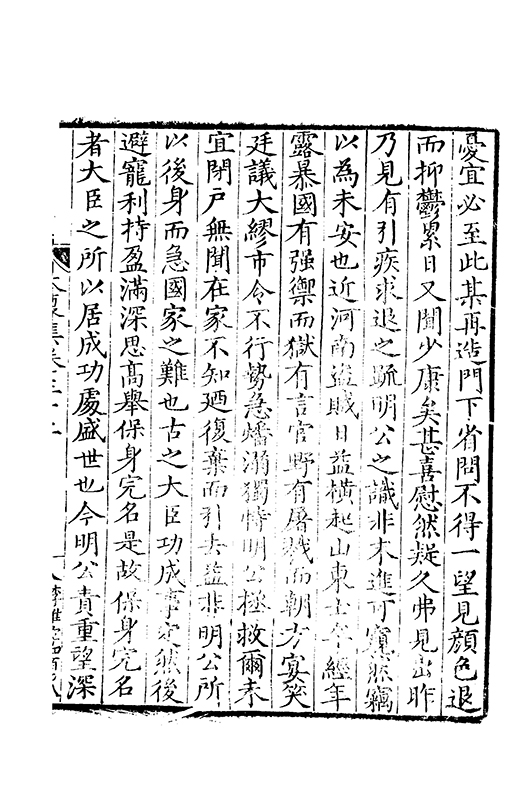 憂宜必至此某再造門下省問不得一望見顔色退
而抑鬱累日又聞少康矣甚喜慰然疑久弗見出昨
乃見有引疾求退之䟽明公之識非木進可窺然竊
以為未安也近河南盗賊日益横起山東士卒經年
露暴國有强禦而獄有言官野有屠戮而朝方宴笑
廷議大繆市令不行勢急燔溺獨恃明公極救爾奈
宜閉戶無聞在家不知廼復棄而引去益非明公所
以後身而急國家之難也古之大臣功成事定然後
避寵利持盈滿深思高舉保身完名是故保身完名
者大臣之所以居成功處盛世也今明公責重望深
集卷三十二
八